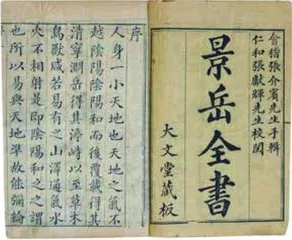 會稽張介賓先生手輯
仁和張獻輝先生校閱
景岳全書
大文堂藏板
序
人身一小天地也天地之氣不
越陰陽陰陽和而後覆載得其
清寧瀾岳得其渟峙以至草木
鳥獸咸若易有之山澤通氣水
火不相射是即陰陽和之之謂
也所以易與天地準故能彌綸